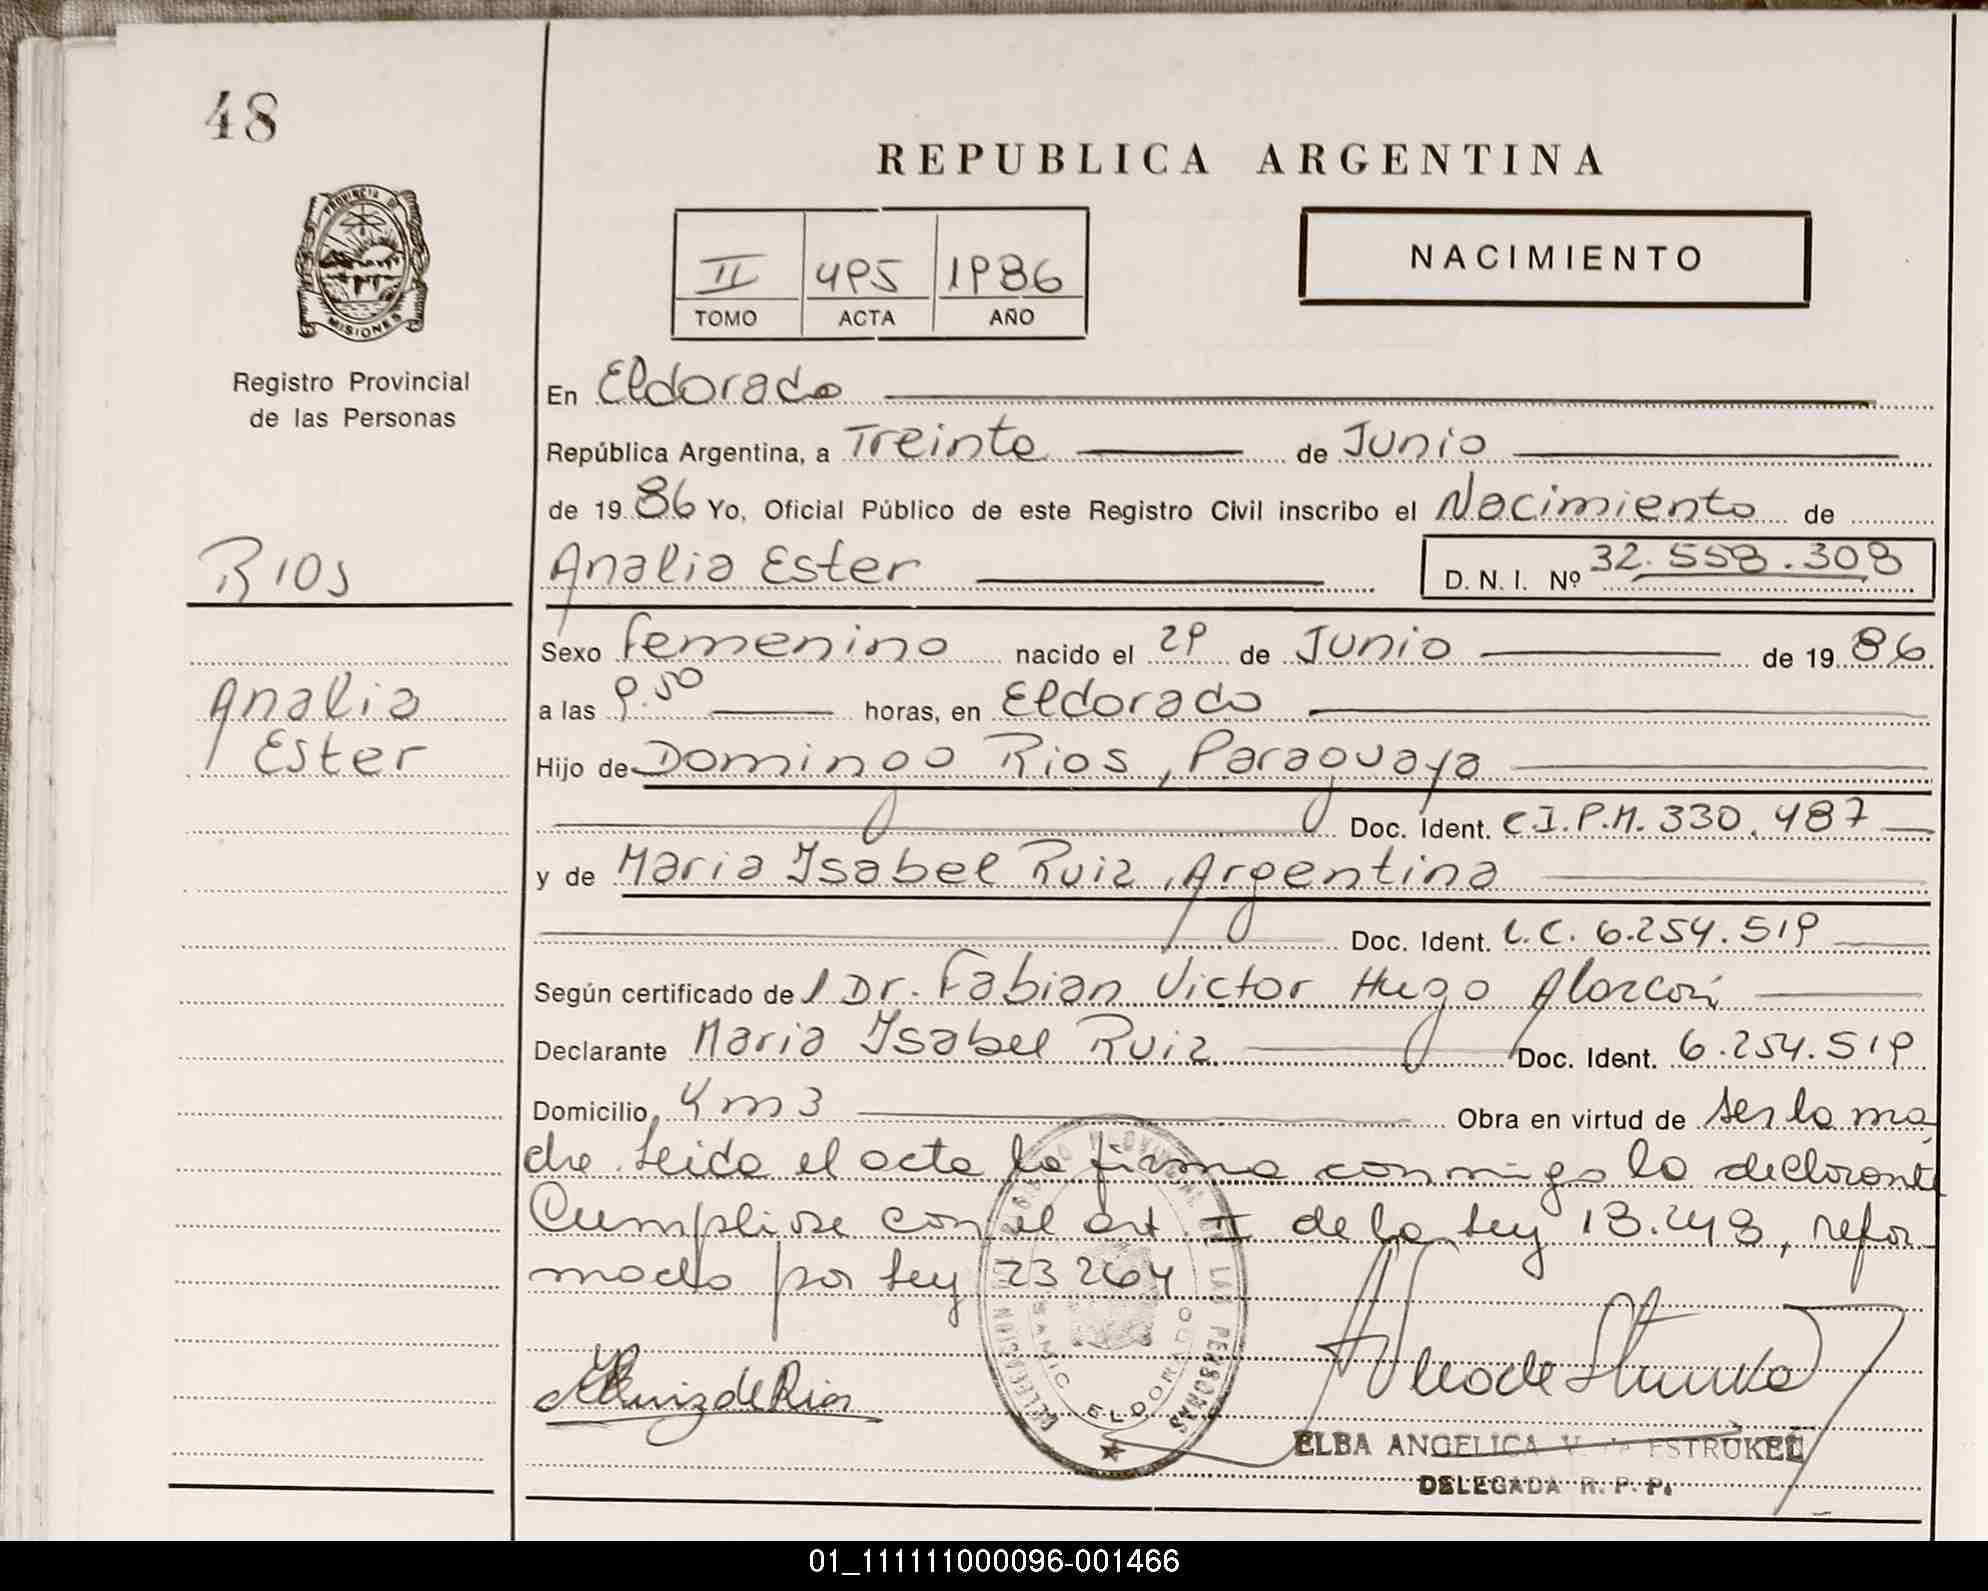 48
REPUBLICA ARGENTINA
PROVINCIA DE
MISIONES
II 495 1986
TOMO ACTA AÑO
NACIMIENTO
Registro Provincial
de las Personas
En Eldorado
República Argentina, a Treinta de Junio
de 1986 Yo, Oficial Público de este Registro Civil inscribo el Nacimiento de
RIOS
Analia Ester D. N. I. Nº 32.558.308
Sexo Femenino nacido el 29 de Junio de 1986
Analia
a las 9.50 horas, en Eldorado
Ester
Hijo de Domingo Rios, Paraguaya
Doc. Ident. C.I.P.M. 330.487
y de Maria Ysabel Ruiz, Argentina
Doc. Ident. L.C. 6.254.519
Según certificado del Dr. Fabian Victor Hugo Alarcón
Declarante Maria Ysabel Ruiz Doc. Ident. 6.254.519
Domicilio Km 3 Obra en virtud de ser la ma
dre. Leida el acta la firma conmigo la declarante
Cumplise con el art. II de la Ley 13.248, refor
mada por Ley 23264
REGISTRO PROVINCIAL DE LAS PERSONAS
DELEGACION
ELDORADO
MIRuiz de Rios
ELBA ANGELICA V. de ESTRUKEL
DELEGADA R. P. P.
01_111111000096-001466